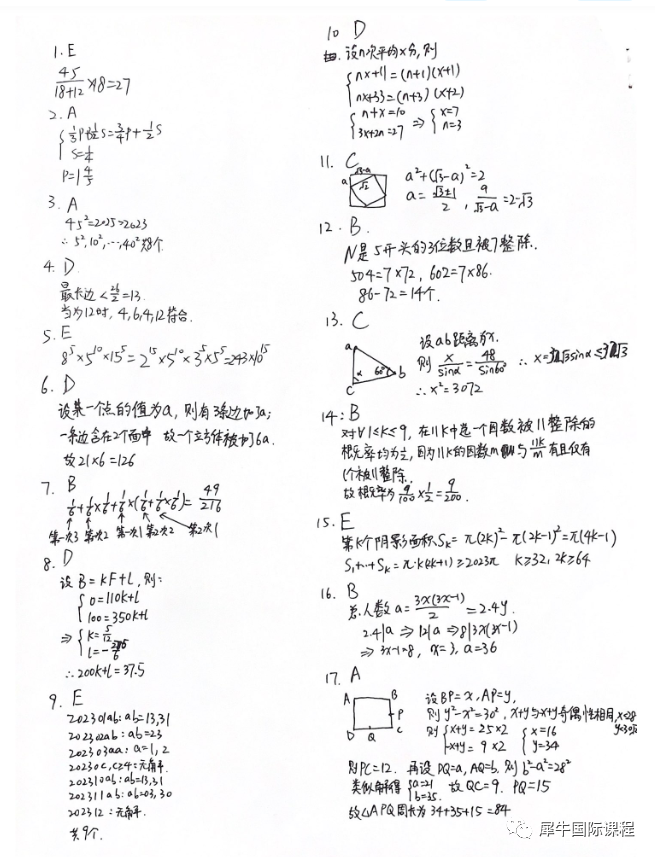 1. E
45/(18+12) ×18=27
2. A
{ 1/3P+1/2S=3/4P+1/2S
S=1/4
P=1 4/5
3. A
45²=2025>2023
∴ 5²,10²,…,40²共8个
4. D
最长边<26/2=13.
当为12时, 4,6,4,12符合.
5. E
8⁵×5¹⁰×15⁵=2¹⁵×5¹⁰×3⁵×5⁵=243×10¹⁵
6. D
设某一个点的值为a, 则有3条边加3a;
一条边含在2个面中 故一个立方体被加6a.
故21×6=126
7. B
1/6+1/6×1/6+1/6×(1/6+1/6×1/6)=49/216
第一次3 第一次2 第一次1 第二次2 第2次1
8. D
设B=kF+l, 则:
{ 0=110k+l
100=350k+l
⇒ { k=5/12
∴200k+l=37.5
9. E
202301ab: ab=13,31
202302ab: ab=23
202303aa: a=1,2
20230c, c≥4: 无解.
202310ab: ab=13,31
202311ab: ab=03,30
202312: 无解.
共9个.
10 D
设n次平均x分, 则
{ nx+11=(n+1)(x+1)
nx+33=(n+3)(x+2)
{ n+x=10
3x+2n=27 ⇒ { x=7
n=3
11. C
√3-a
a
√2
a²+(√3-a)²=2
a=(√3±1)/2, a/(√3-a)=2-√3
12. B.
N是5开头的3位数且被7整除.
504=7×72, 602=7×86.
86-72=14个.
13. C
a
b
c
α
60°
设ab距离为x.
则 x/sinα=48/sin60° ∴ x=32√3sinα≤32√3
∴ x²=3072
14. B
对∀1≤k≤9, 在11k中选一个因数被11整除的
概率均为1/2, 因为11k的因数m与11k/m有且仅有
1个被11整除.
故概率为9/100×1/2=9/200.
15. E
第k个阴影面积Sk=π(2k)²-π(2k-1)²=π(4k-1)
S₁+…+Sk=π·k(2k+1)≥2023π k≥32, 2k≥64
16. B
总人数a=3x(3x-1)/2=2.4y.
2.4|a ⇒ 12|a ⇒ 8|3x(3x-1)
⇒ 3x-1=8, x=3, a=36
17. A
A
B
P
D
Q
C
设BP=x, AP=y,
则y²-x²=30², x+y与x+y奇偶性相同, x=28
则 { x+y=25×2
-x+y=9×2
{ x=16
y=34
则PC=12. 再设DQ=a, AQ=b. 则b²-a²=28²
类似解得 { a=21
b=35. 故QC=9. PQ=15
故△APQ周长为34+35+15=84
犀牛国际课程